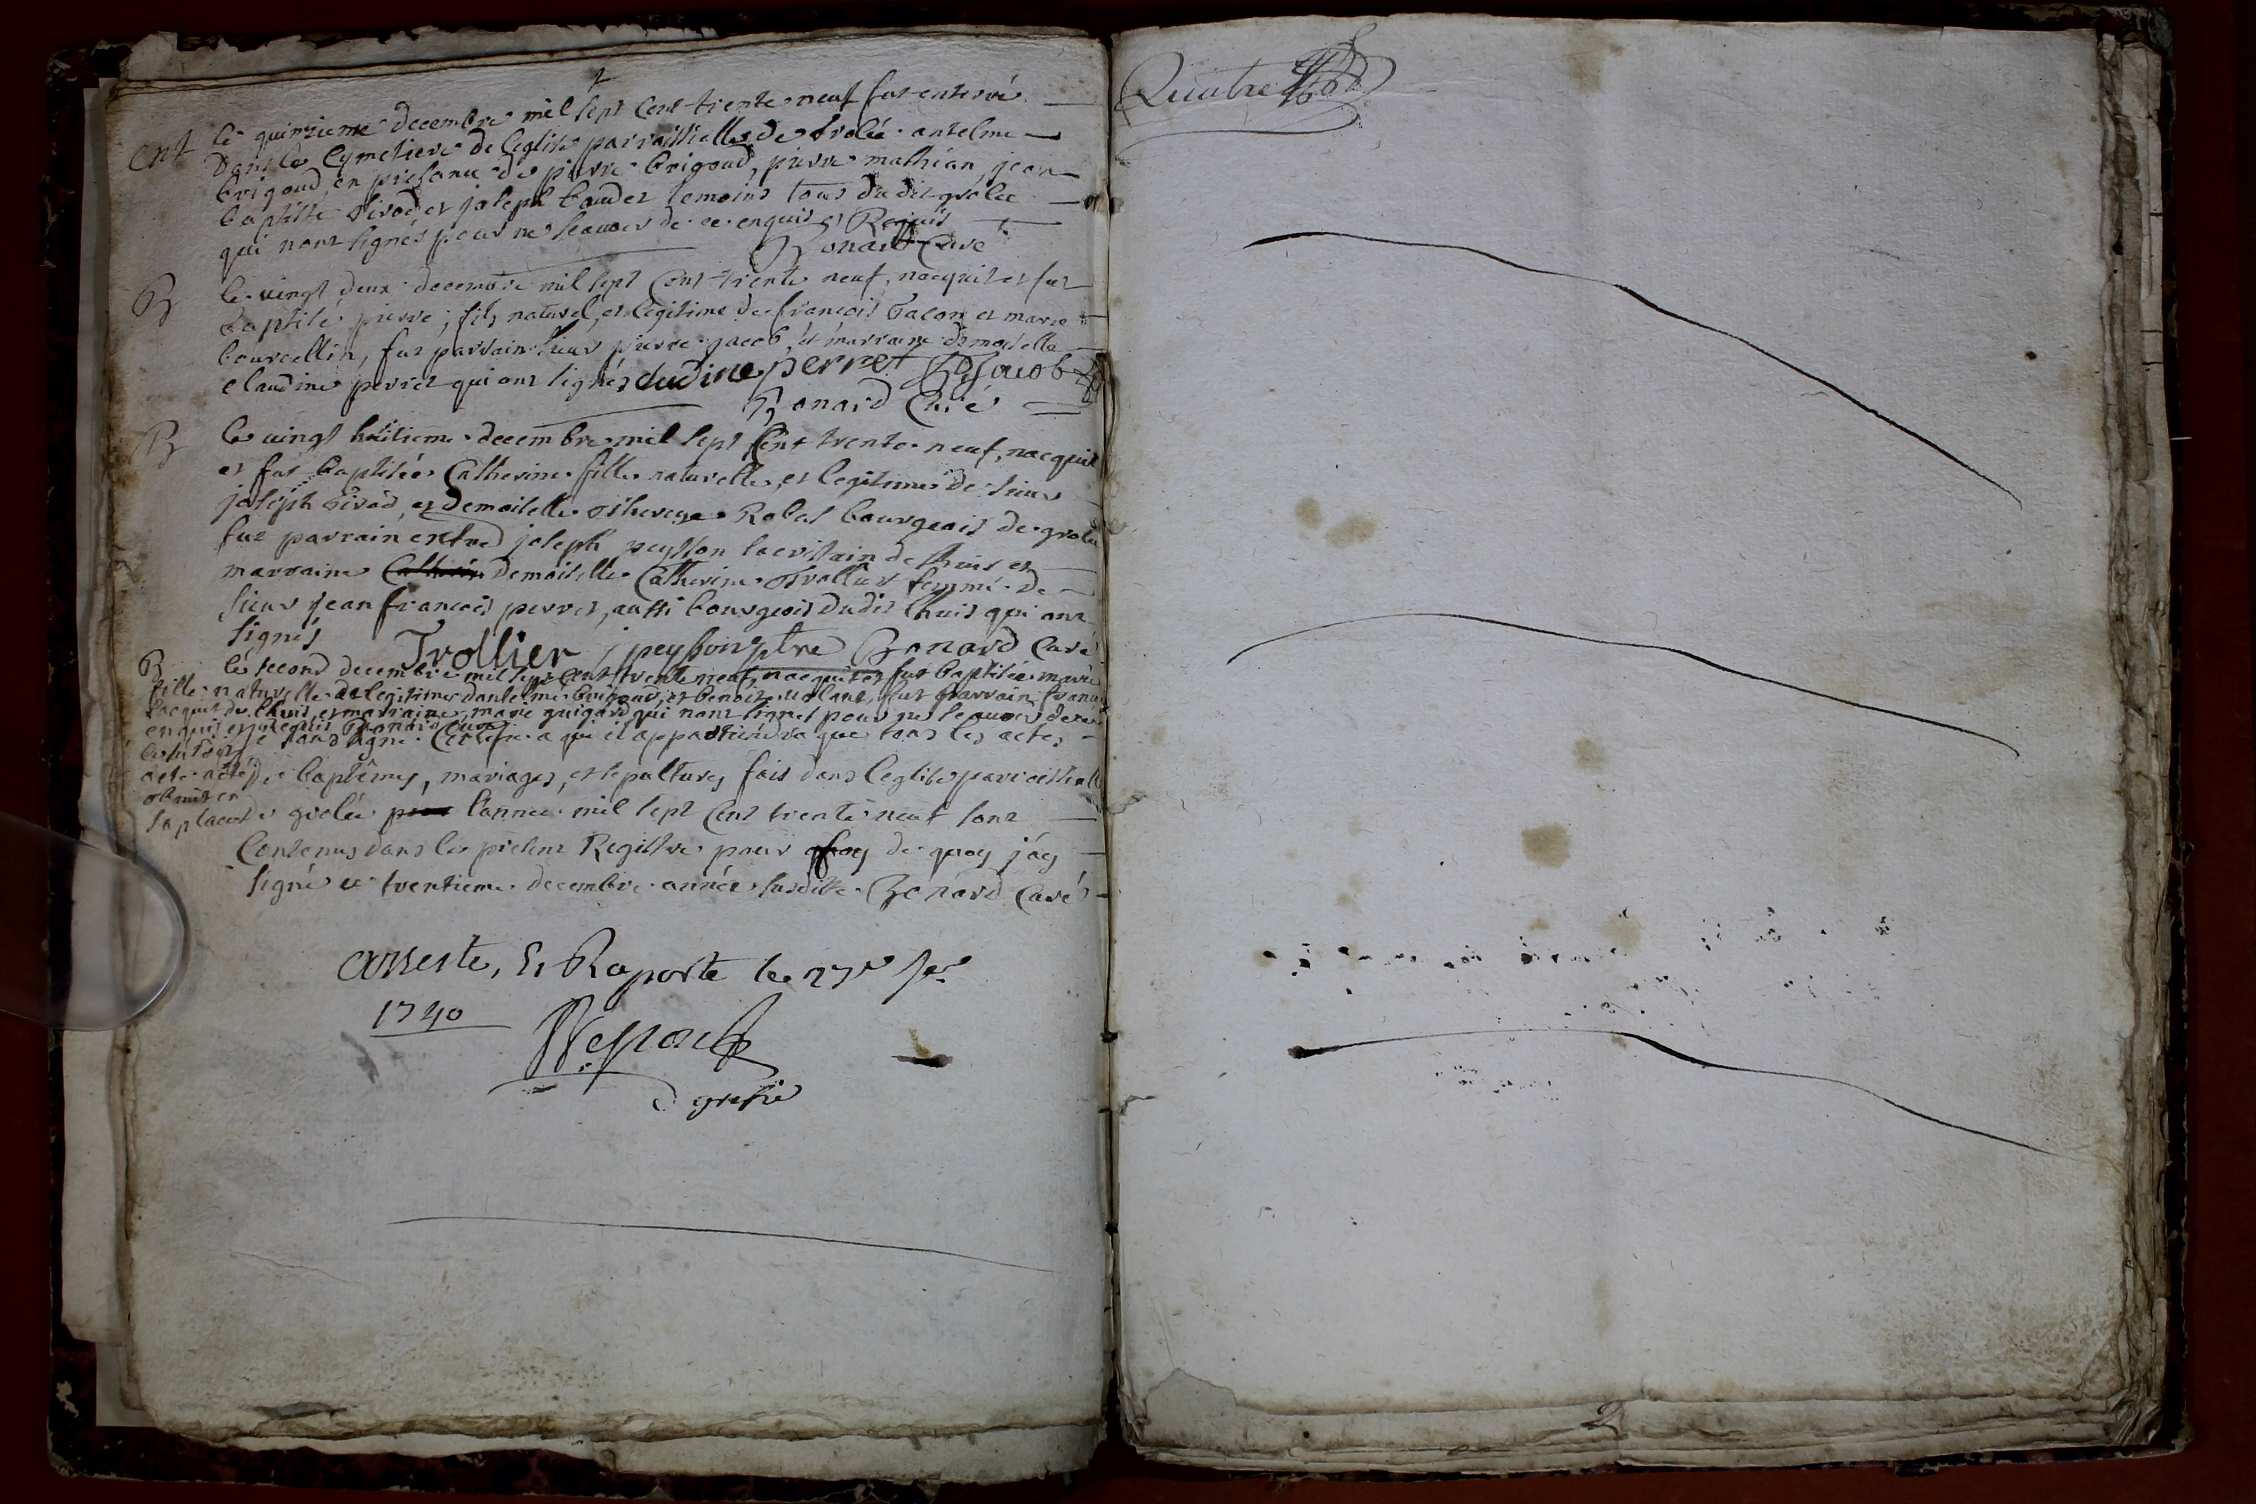 ent le quinzieme decembre mil sept cent trente neuf fut enterré
dans le cymetiere de leglise parroissielle de Grolée antelme
brigoud, en presance de pierre brigoud, pierre mathian, jean
baptiste Girod, et joseph baudet temoins tous dudit grolée
qui nont signés pour ne scavoir de ce enquis et Requis
Bonard Curé
B le vingt deux decembre mil sept cent trente neuf, nacquit et fut
baptisé pierre, fils naturel, et legitime de françois bacon et marie
bourcellin, fut parrain sieur pierre jacob, et marraine demoiselle
claudine perret qui ont signés cludine perret Jacob
Bonard Curé
B le vingt huitieme decembre mil sept cent trente neuf, nacquit
et fut baptisée Catherine fille naturelle, et legitime de sieur
joseph Girod, et demoiselle therese Robat bourgeois de grolée
fut parrain joseph peysson sacristain de lhuis et
marraine Catherine demoiselle Catherine Trollier femme de
sieur jean françois perret, aussi bourgeois dudit lhuis qui ont
signés Trollier j peysson ptre Bonard Curé
B le second decembre mil sept cent trente neuf, nacquit et fut baptisée marie
fille naturelle et legitime dantelme brigoud, et benoite fut parrain
de lhuis, et marraine marie guigard qui nont signés pour ne scavoir de ce
enquis et requis Bonard curé
je sous signé Certifie a qui il appartiendra que tous les actes
acte
obmis en
sa place
de baptêmes, mariages, et sepultures fais dans leglise parroissielle
de grolée pour lannee mil sept cent trente neuf sont
Contenus dans le present Registre pour quoy de quoy jáy
signé ce trentieme decembre année susditte Bonard Curé
Arreste, Et Raporte le
1740
greffie
Quatre
2